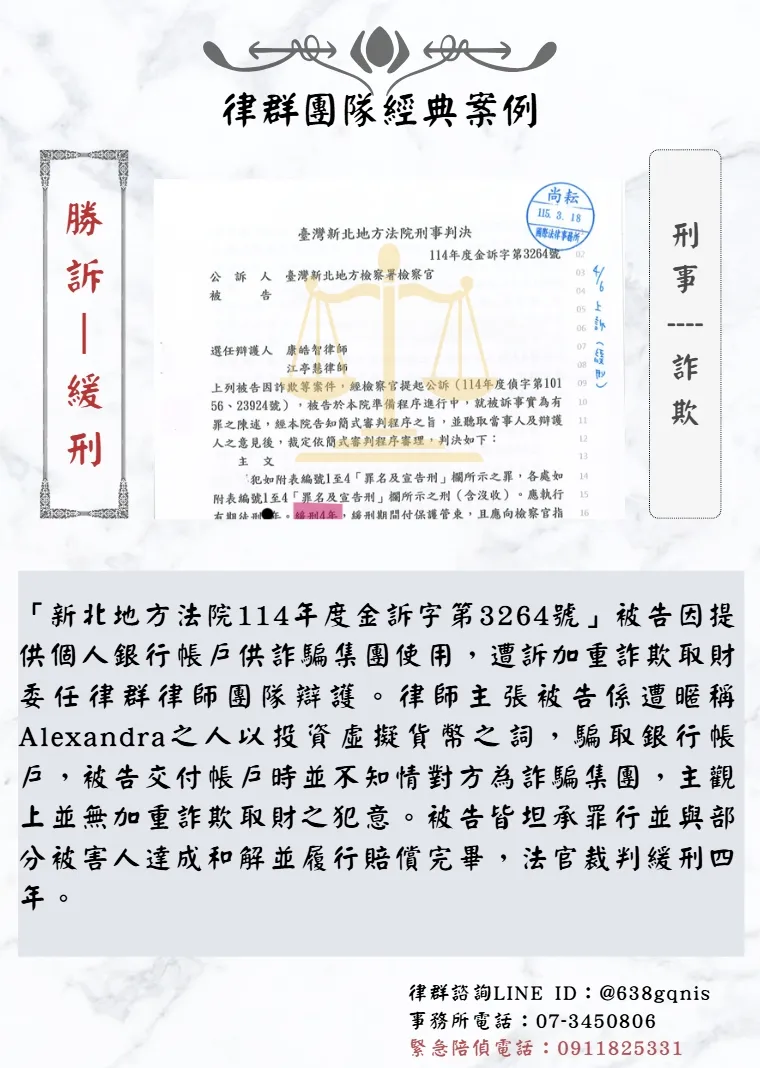 律群團隊經典案例
勝訴—緩刑
刑事----詐欺
尚耘
115. 3. 18
國際法律事務所
臺灣新北地方法院刑事判決
114年度金訴字第3264號
公訴人 臺灣新北地方檢察署檢察官
被告
選任辯護人 康皓智律師
江亭慧律師
上列被告因詐欺等案件,經檢察官提起公訴(114年度偵字第101
56、23924號),被告於本院準備程序進行中,就被訴事實為有
罪之陳述,經本院告知簡式審判程序之旨,並聽取當事人及辯護
人之意見後,裁定依簡式審判程序審理,判決如下:
主文
犯如附表編號1至4「罪名及宣告刑」欄所示之罪,各處如
附表編號1至4「罪名及宣告刑」欄所示之刑(含沒收)。應執行
有期徒刑 年。緩刑4年,緩刑期間付保護管束,且應向檢察官指
02
03
04
05
06
07
08
09
10
11
12
13
14
15
16
4/6上訴(緩刑)
「新北地方法院114年度金訴字第3264號」被告因提
供個人銀行帳戶供詐騙集團使用,遭訴加重詐欺取財
委任律群律師團隊辯護。律師主張被告係遭暱稱
Alexandra之人以投資虛擬貨幣之詞,騙取銀行帳
戶,被告交付帳戶時並不知情對方為詐騙集團,主觀
上並無加重詐欺取財之犯意。被告皆坦承罪行並與部
分被害人達成和解並履行賠償完畢,法官裁判緩刑四
年。
律群諮詢LINE ID:@638gqnis
事務所電話:07-3450806
緊急陪偵電話:0911825331